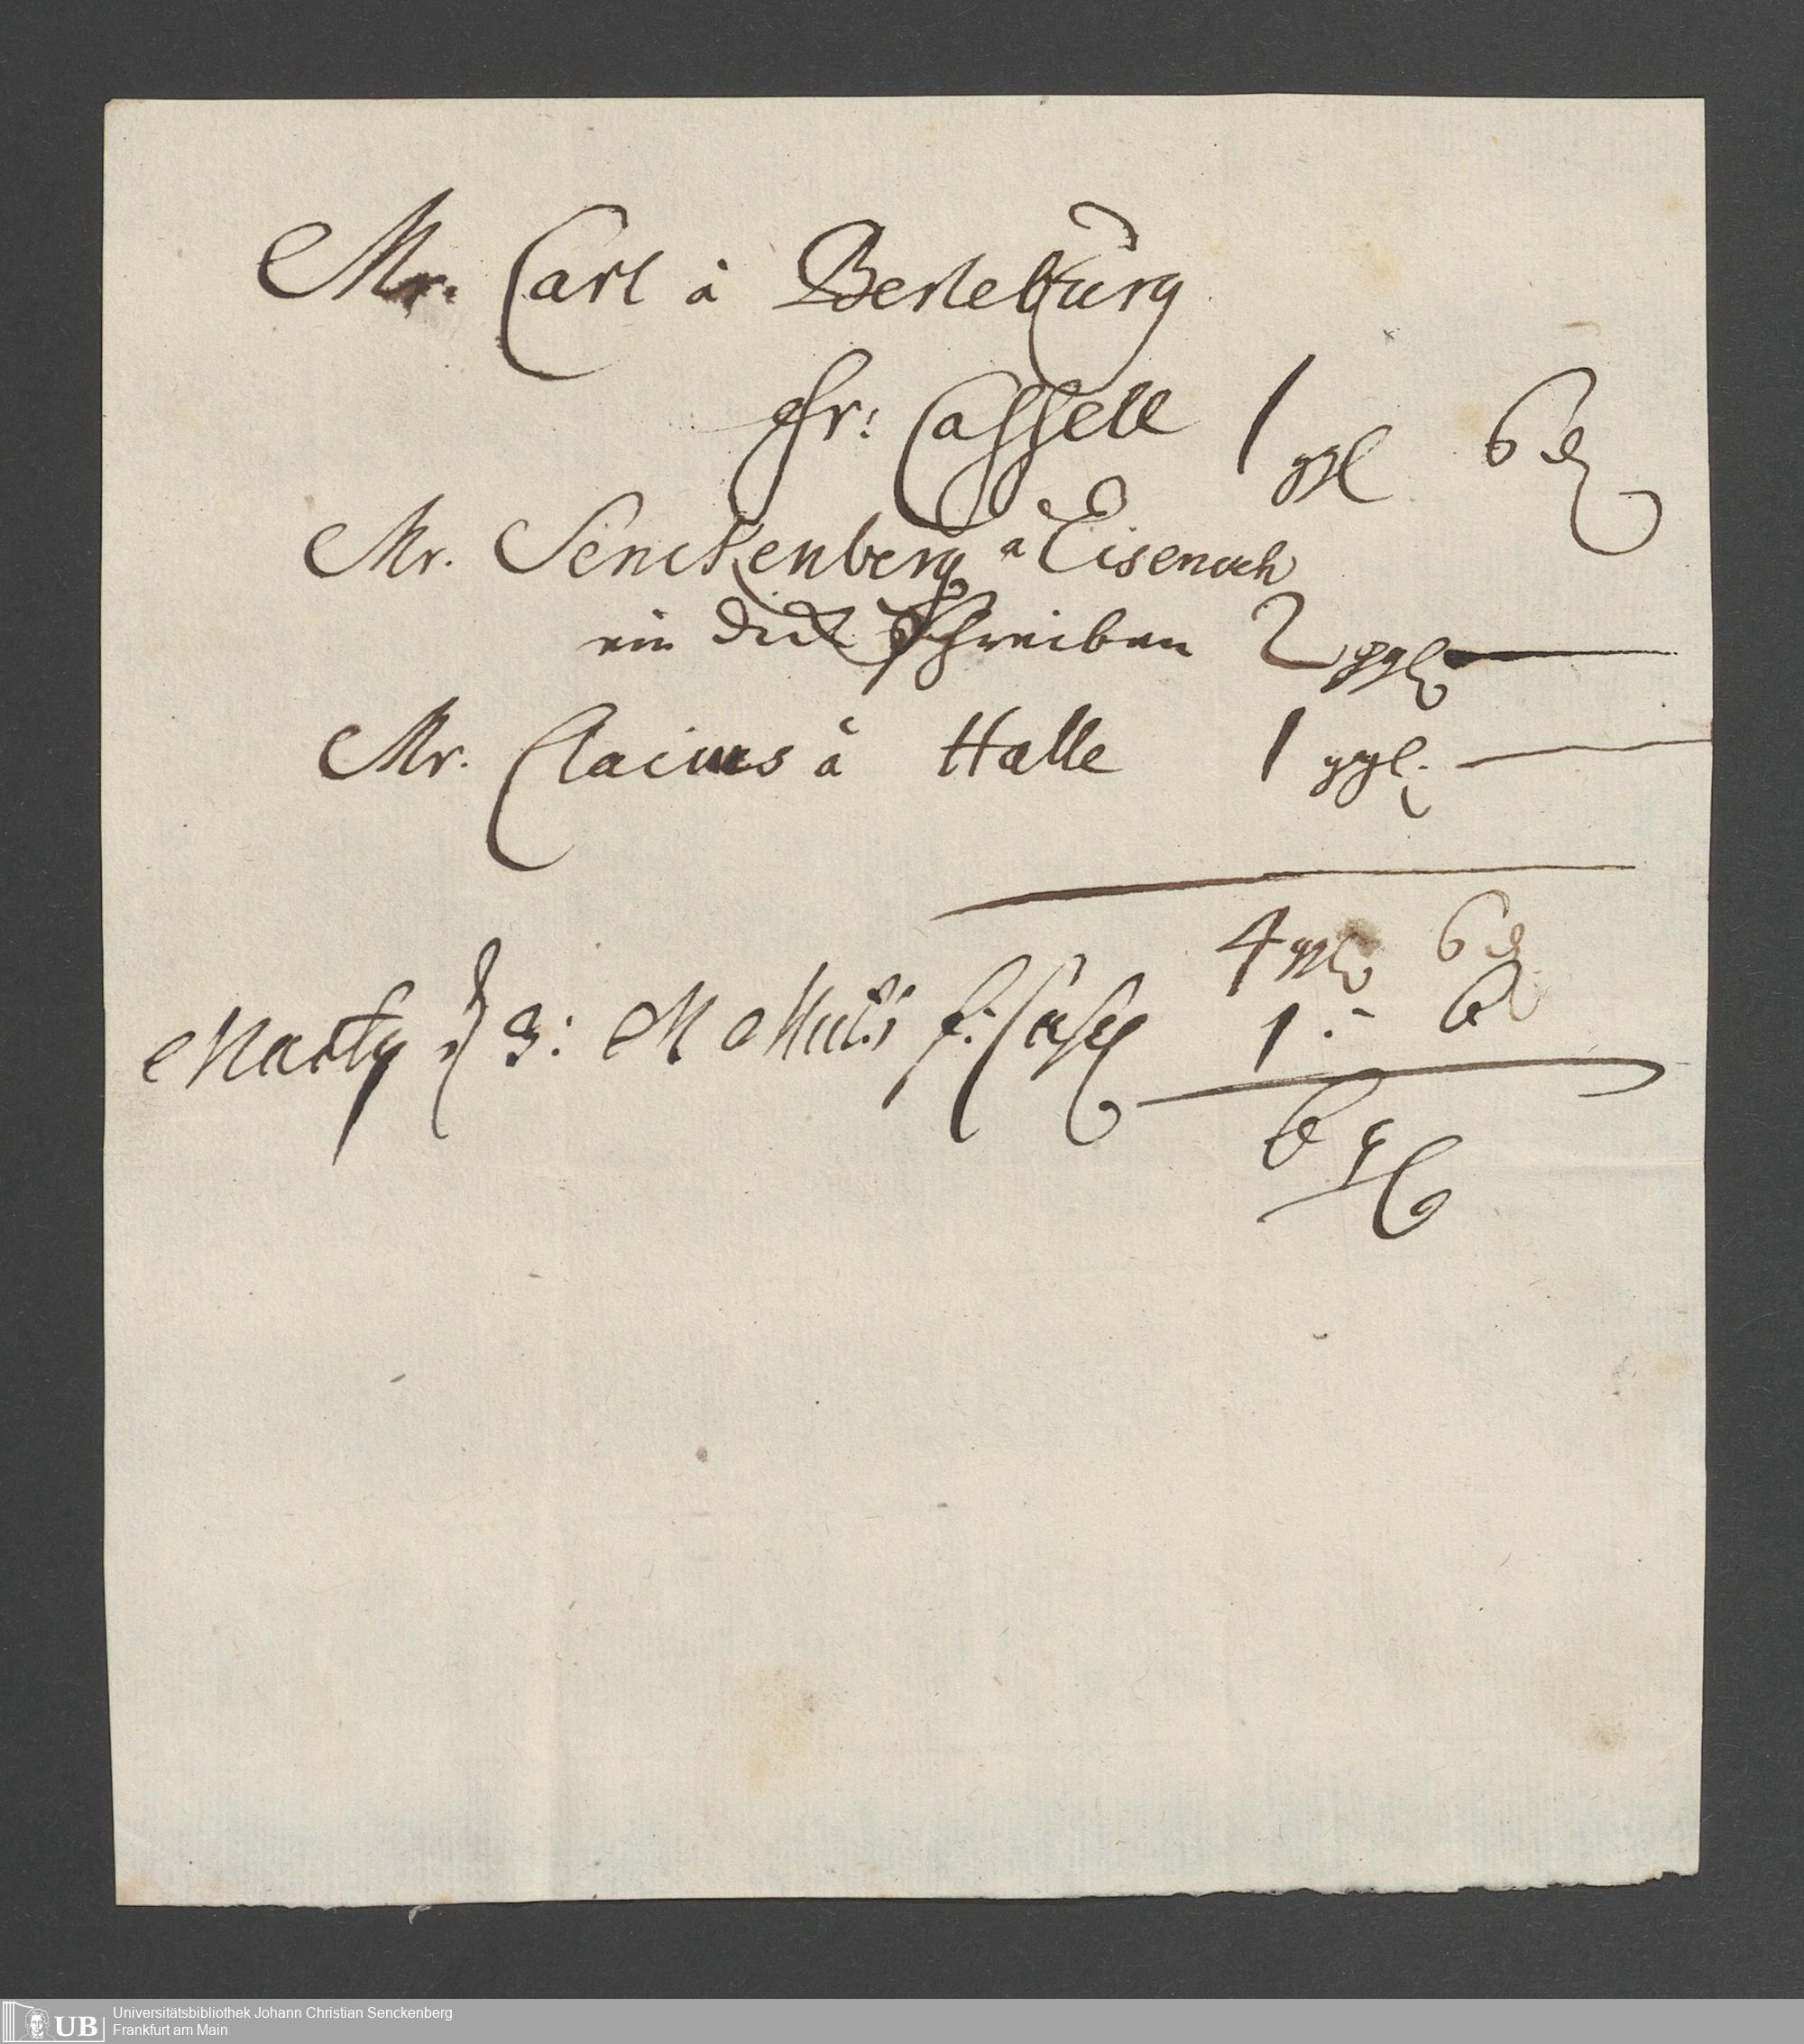 Mr. Carl à Berleburg
fr: Cassell 1 ggl 6 d
Mr. Senckenberg a Eisenach
ein dick Schreiben 2 ggl
Mr. Clacius à Halle 1 ggl.
4 ggl 6 d
3: M 1 :- 6
6 gl
UB Universitätsbibliothek Johann Christian Senckenberg
Frankfurt am Main